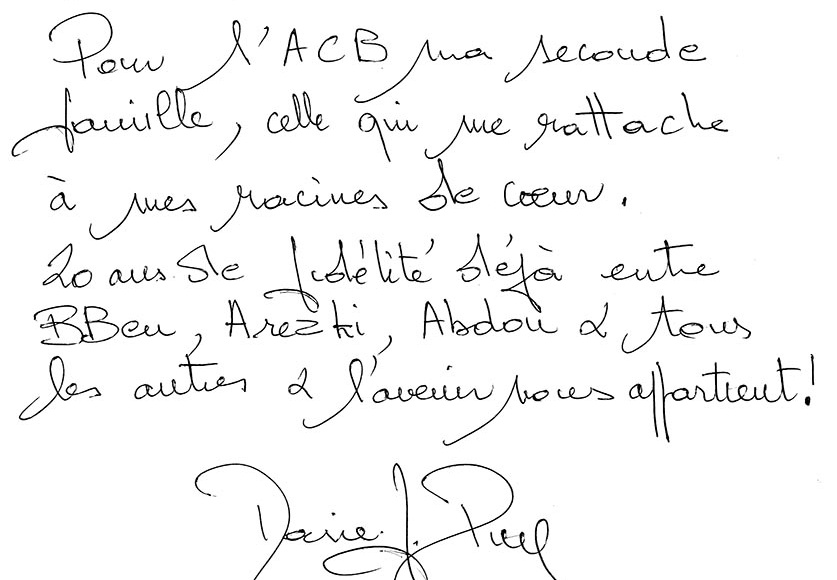 Pour l'ACB ma seconde
famille, celle qui me rattache
à mes racines de cœur.
20 ans de fidélité déjà entre
BBen, Arezki, Abdou & tous
les autres & l'avenir nous appartient!
J.